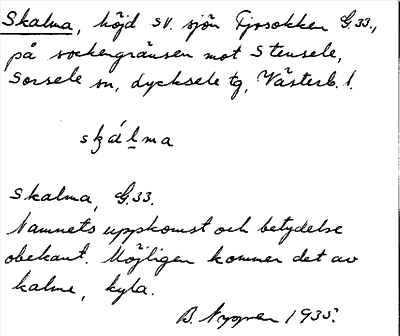 Skalma, höjd sv. sjön Tjrsokken G.33.,
på sockengränsen mot Stensele,
Sorsele sn, Lycksele tg, Västerb. l.
skálma
Skalma, G.33.
Namnets uppkomst och betydelse
obekant. Möjligen kommer det av
kalme, kyla.
B. 1935.